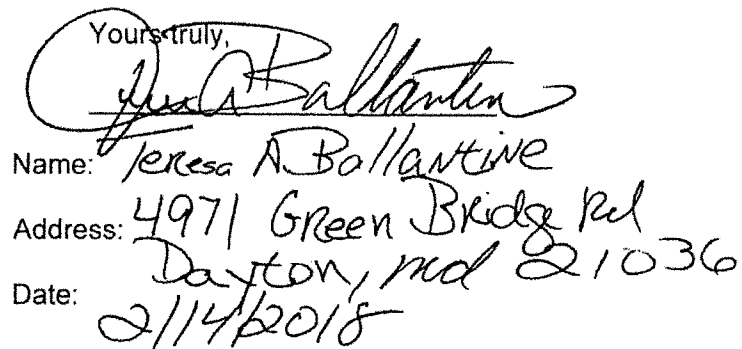 Yours truly,
Teresa A Ballantine
Name: Teresa A Ballantine
Address: 4971 Green Bridge Rd
Dayton, md 21036
Date: 2/14/2018